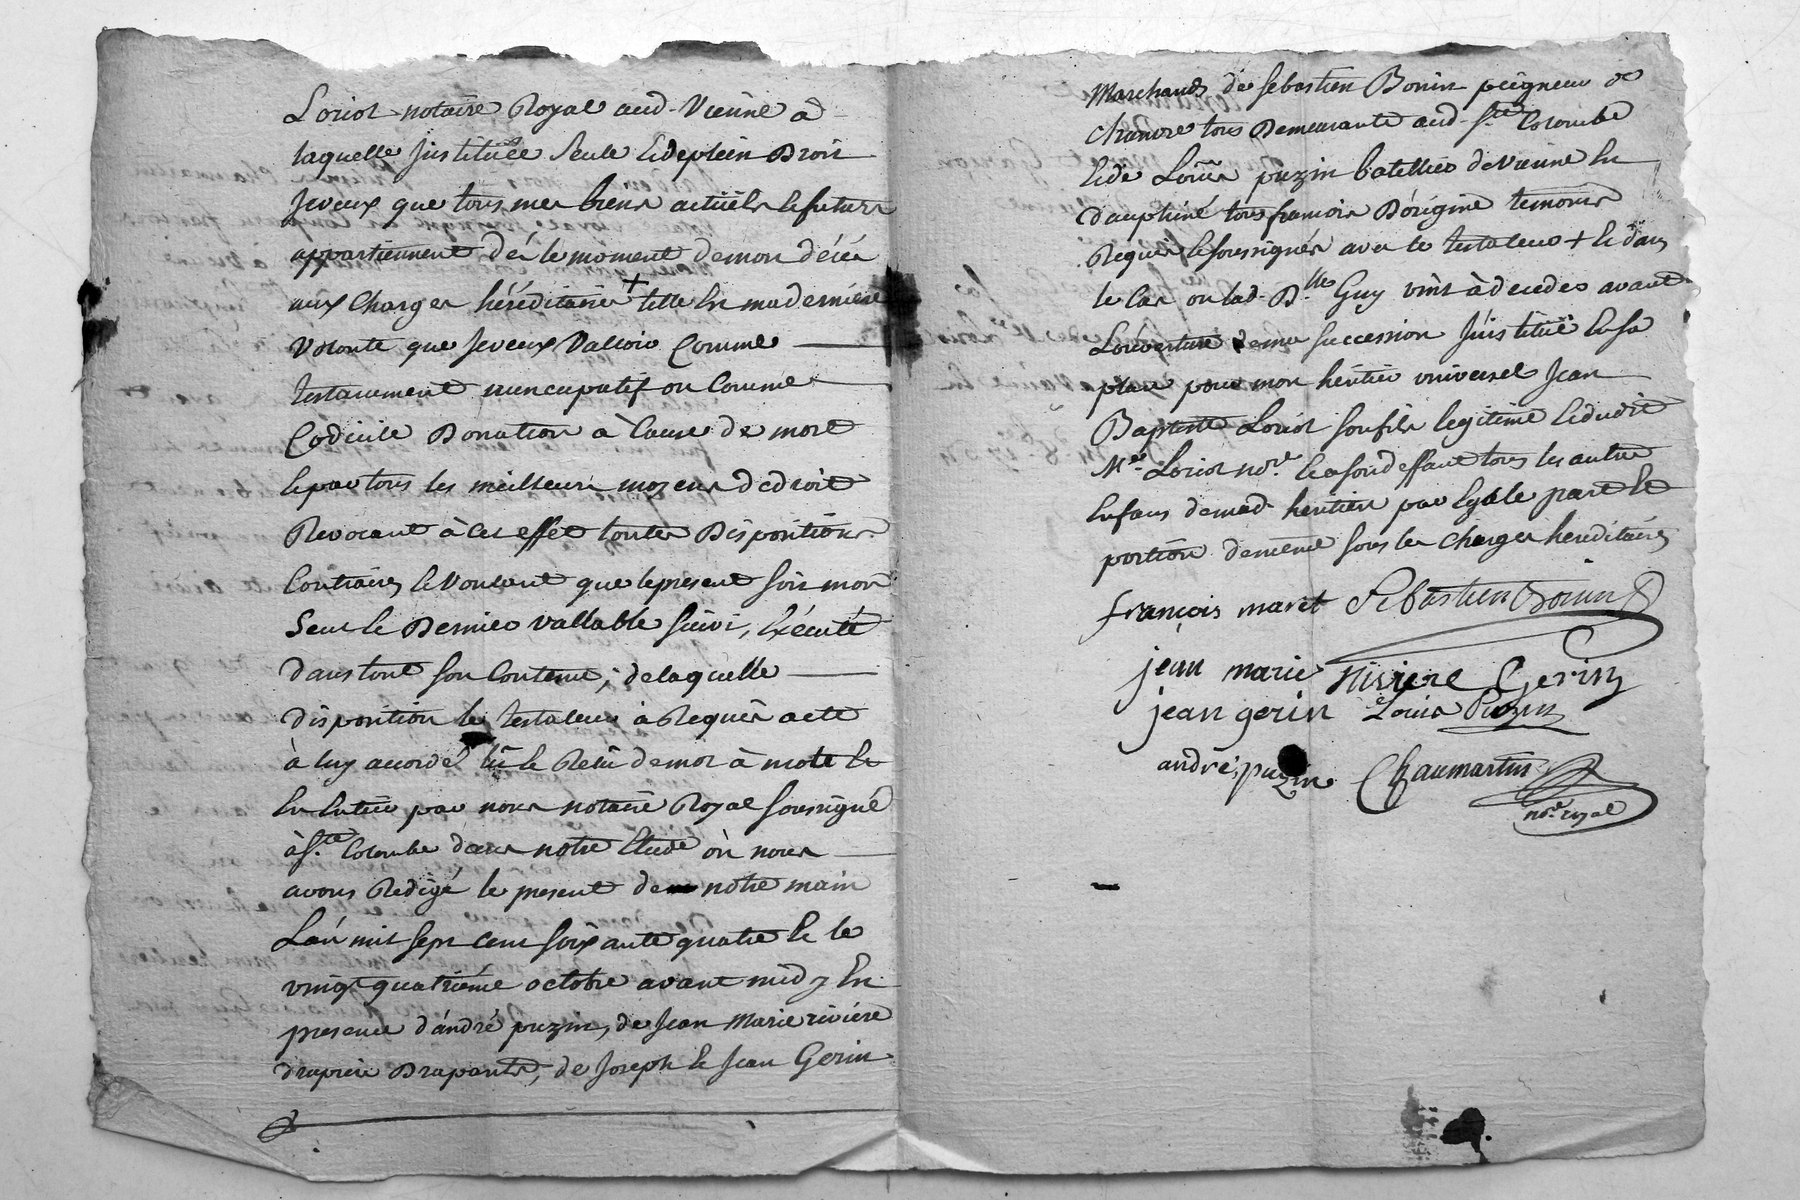 Loriot notaire Royal aud. Vienne à
laquelle J'instituée Seule & de plein Droit
Je veux que tous mes biens actüels & futurs
appartiennent dés le moment de mon décés
aux Charges héréditaires + telle En ma derniere
Volonté que Je veux Valloir Comme
testament nuncupatif ou Comme
Codicile Donation à Cause de mort
& par tous les meilleurs moyens de droit
Revocant à Cet effet toutes Dispositions
Contraires & Voulant que le present soit mon
Seul & Dernier vallable suivi, Exécuté
dans tout son Contenu, de laquelle
disposition le testateur à Requis acte
à luy accordé lû & Relû de mot à mot &
En Entier par nous notaire Royal soussigné
à Ste Colombe dans notre Etude où nous
avons Redigé le present de notre main
L'an mil sept cent soixante quatre & le
vingt quatriéme octobre avant midy En
presence d'andré puzin, de Jean Marie riviére
Drapants, de Joseph & Jean Gerin
Marchands de sebastien Bonin peigneur de
chanvre tous Demeurants aud. Ste Colombe
& de Loüis puzin batellier de Vienne En
dauphiné tous francois D'origine temoins
Requis & soussignés avec le testateur + & dans
le Cas ou lad. Dlle Guy vint à deceder avant
L'ouverture de ma succession J'institüe En sa
place pour mon héritier universel Jean
Baptiste Loriot son fils legitime & dudit
Me Loriot nore & a son deffaut tous les autres
Enfans de mad. heritiere par Egale part &
portion de même sous les Charges hereditaires
françois maret Sebastien Bonin
jean marie riviere Gerin
jean gerin Louis Puzin
andré puzin Chaumartin
nore royal